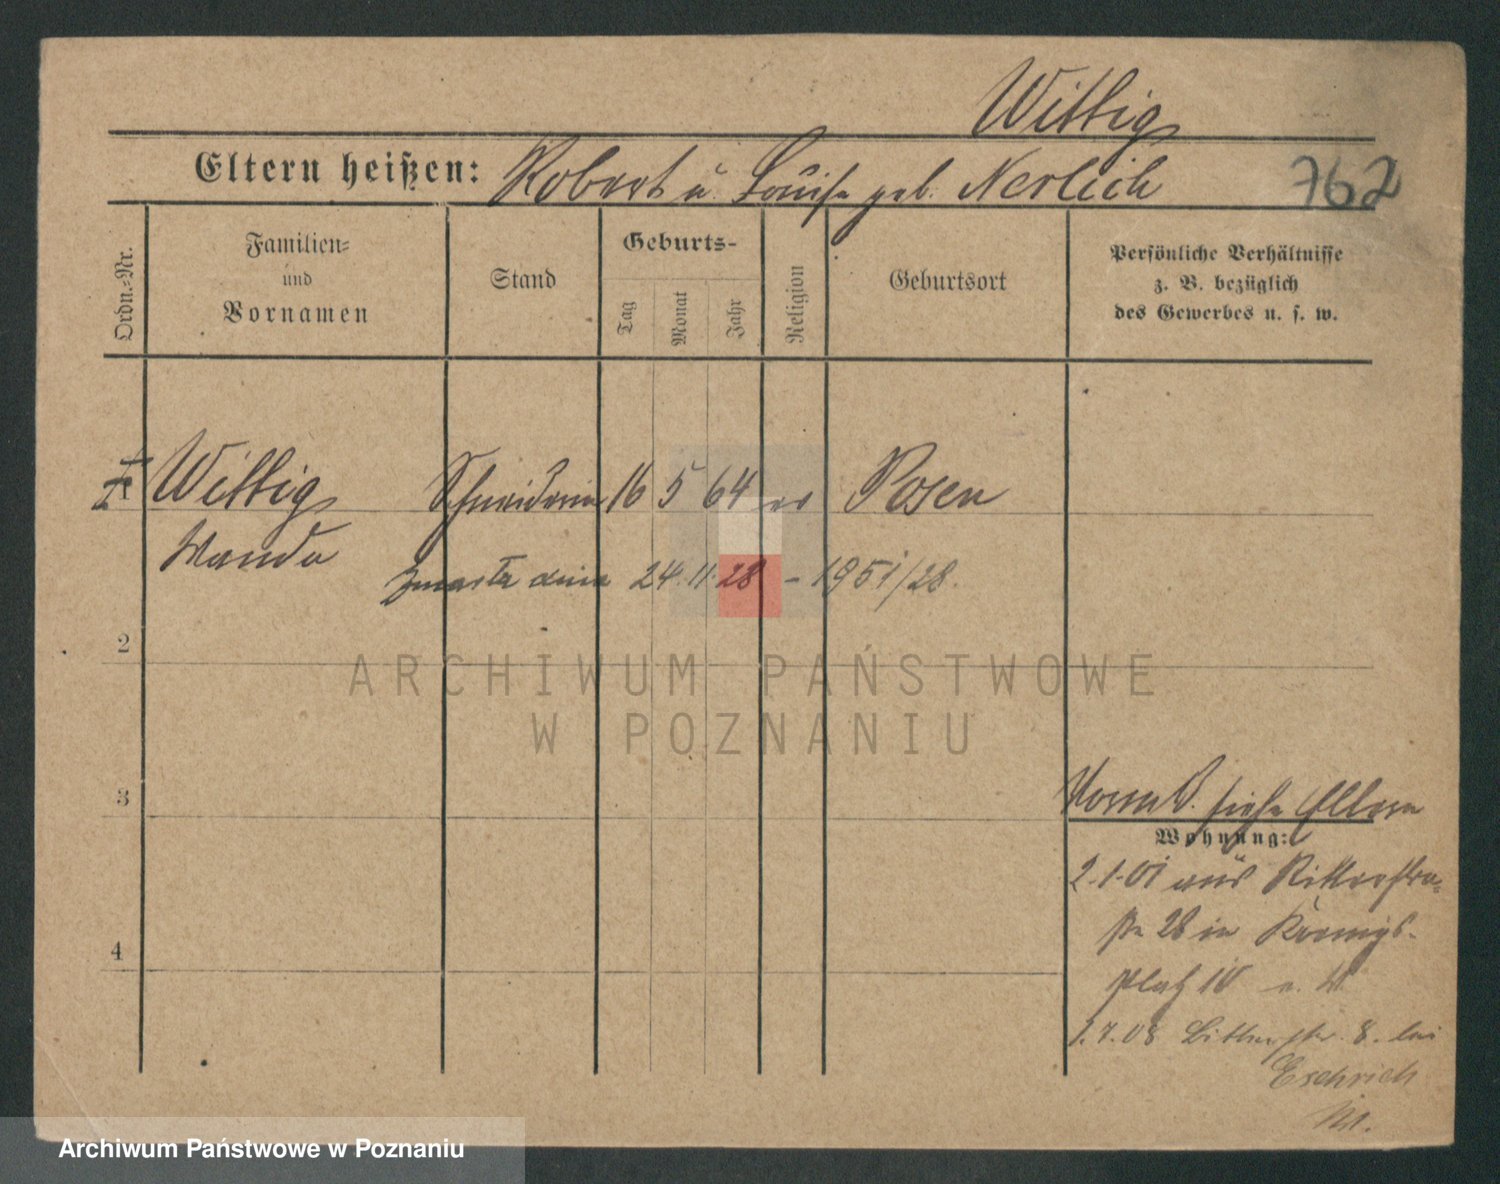 Wittig
Eltern heißen: Robert u. Louise geb. Nerlich
762
Ordn.-Nr.
Familien-
und
Vornamen
Stand
Geburts-
Tag
Monat
Jahr
Religion
Geburtsort
Persönliche Verhältnisse
z. B. bezüglich
des Gewerbes u. s. w.
1 Wittig Schneiderin 16 5 64 ev Posen
Wanda
zmarła dnia 24.11.28 - 1951/28.
2
ARCHIWUM PAŃSTWOWE
W POZNANIU
3
siehe Eltern
Wohnung:
2.1.01 aus Ritterstra-
ße 28 in Königs-
platz IV
1.7.08 Ritterstr. 8. bei
Eschrich
4
Archiwum Państwowe w Poznaniu